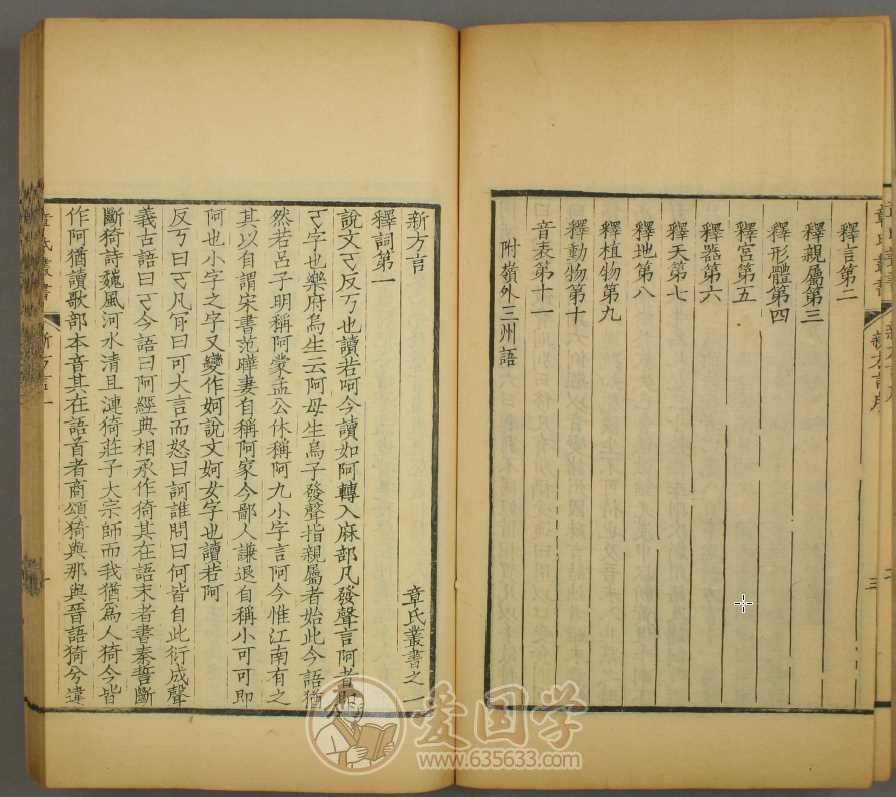 章氏叢書 新方言序 三
釋言第二
釋親屬第三
釋形體第四
釋宮第五
釋器第六
釋天第七
釋地第八
釋植物第九
釋動物第十
音表第十一
附嶺外三州語
新方言 章氏叢書之一
釋詞第一
說文𠀀反丂也讀若呵今讀如阿轉入麻部凡發聲言阿者即
𠀀字也樂府烏生云阿母生烏子發聲指親屬者始此今語猶
然若呂子明稱阿蒙孟公休稱阿九小字言阿今惟江南有之
其以自謂宋書范曄妻自稱阿家今鄙人謙退自稱小可可即
阿也小字之字又變作妸說文妸女字也讀若阿
反丂曰𠀀凡肎曰可大言而怒曰訶誰問曰何皆自此衍成聲
義古語曰𠀀今語曰阿經典相承作猗其在語末者書秦誓斷
斷猗詩魏風河水清且漣猗莊子大宗師而我猶爲人猗今皆
作阿猶讀歌部本音其在語首者商頌猗與那與晉語猗兮違
章氏叢書 新方言一
爱国学
www.635633.com